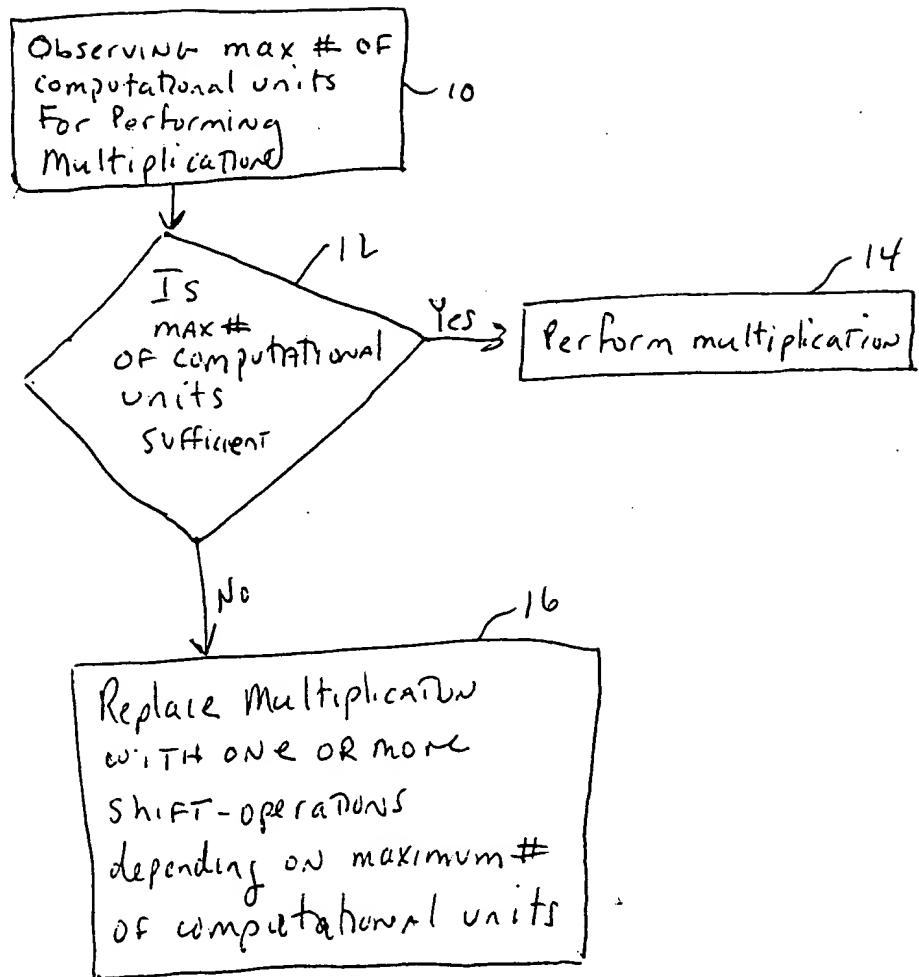 Observing max # of
computational units
For Performing
Multiplication
10
Is
max #
of computational
units
sufficient
12
Yes
14
Perform multiplication
No
16
Replace Multiplication
with one or more
shift-operations
depending on maximum #
of computational units